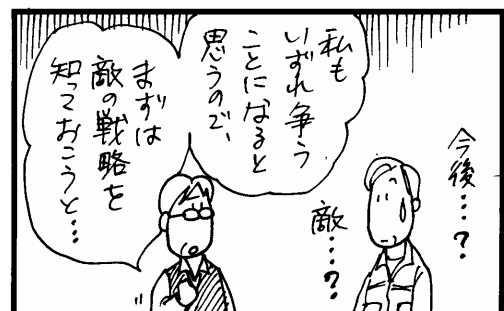 私も
いずれ争う
ことになると
思うので、
まずは
敵の戦略を
知っておこうと…
今後…?
敵…?